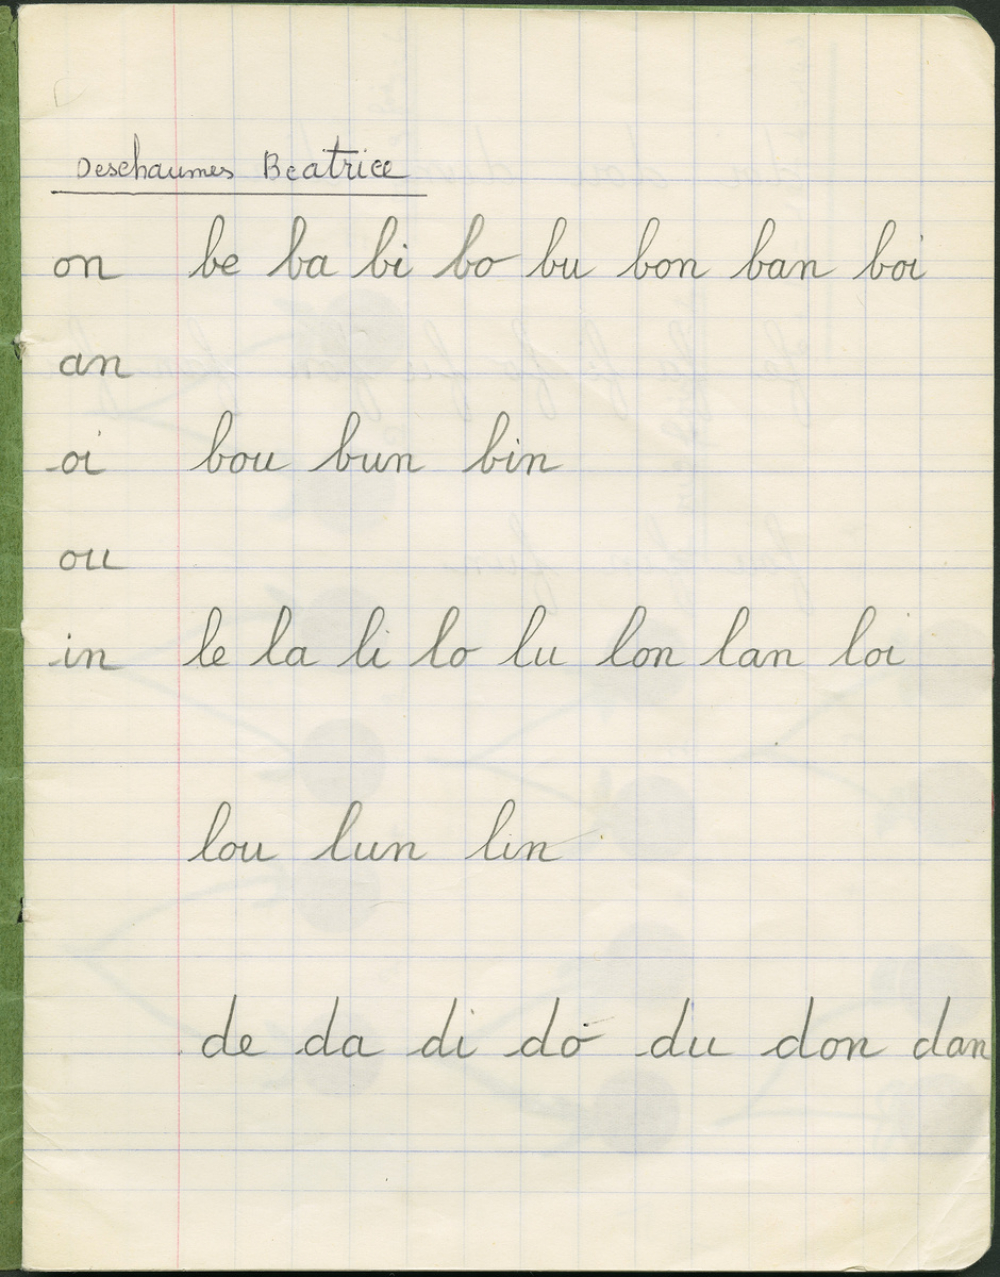 Deschaumes Beatrice
on be ba bi bo bu bon ban boi
an
oi bou bun bin
ou
in le la li lo lu lon lan loi
lou lun lin
de da di do du don dan